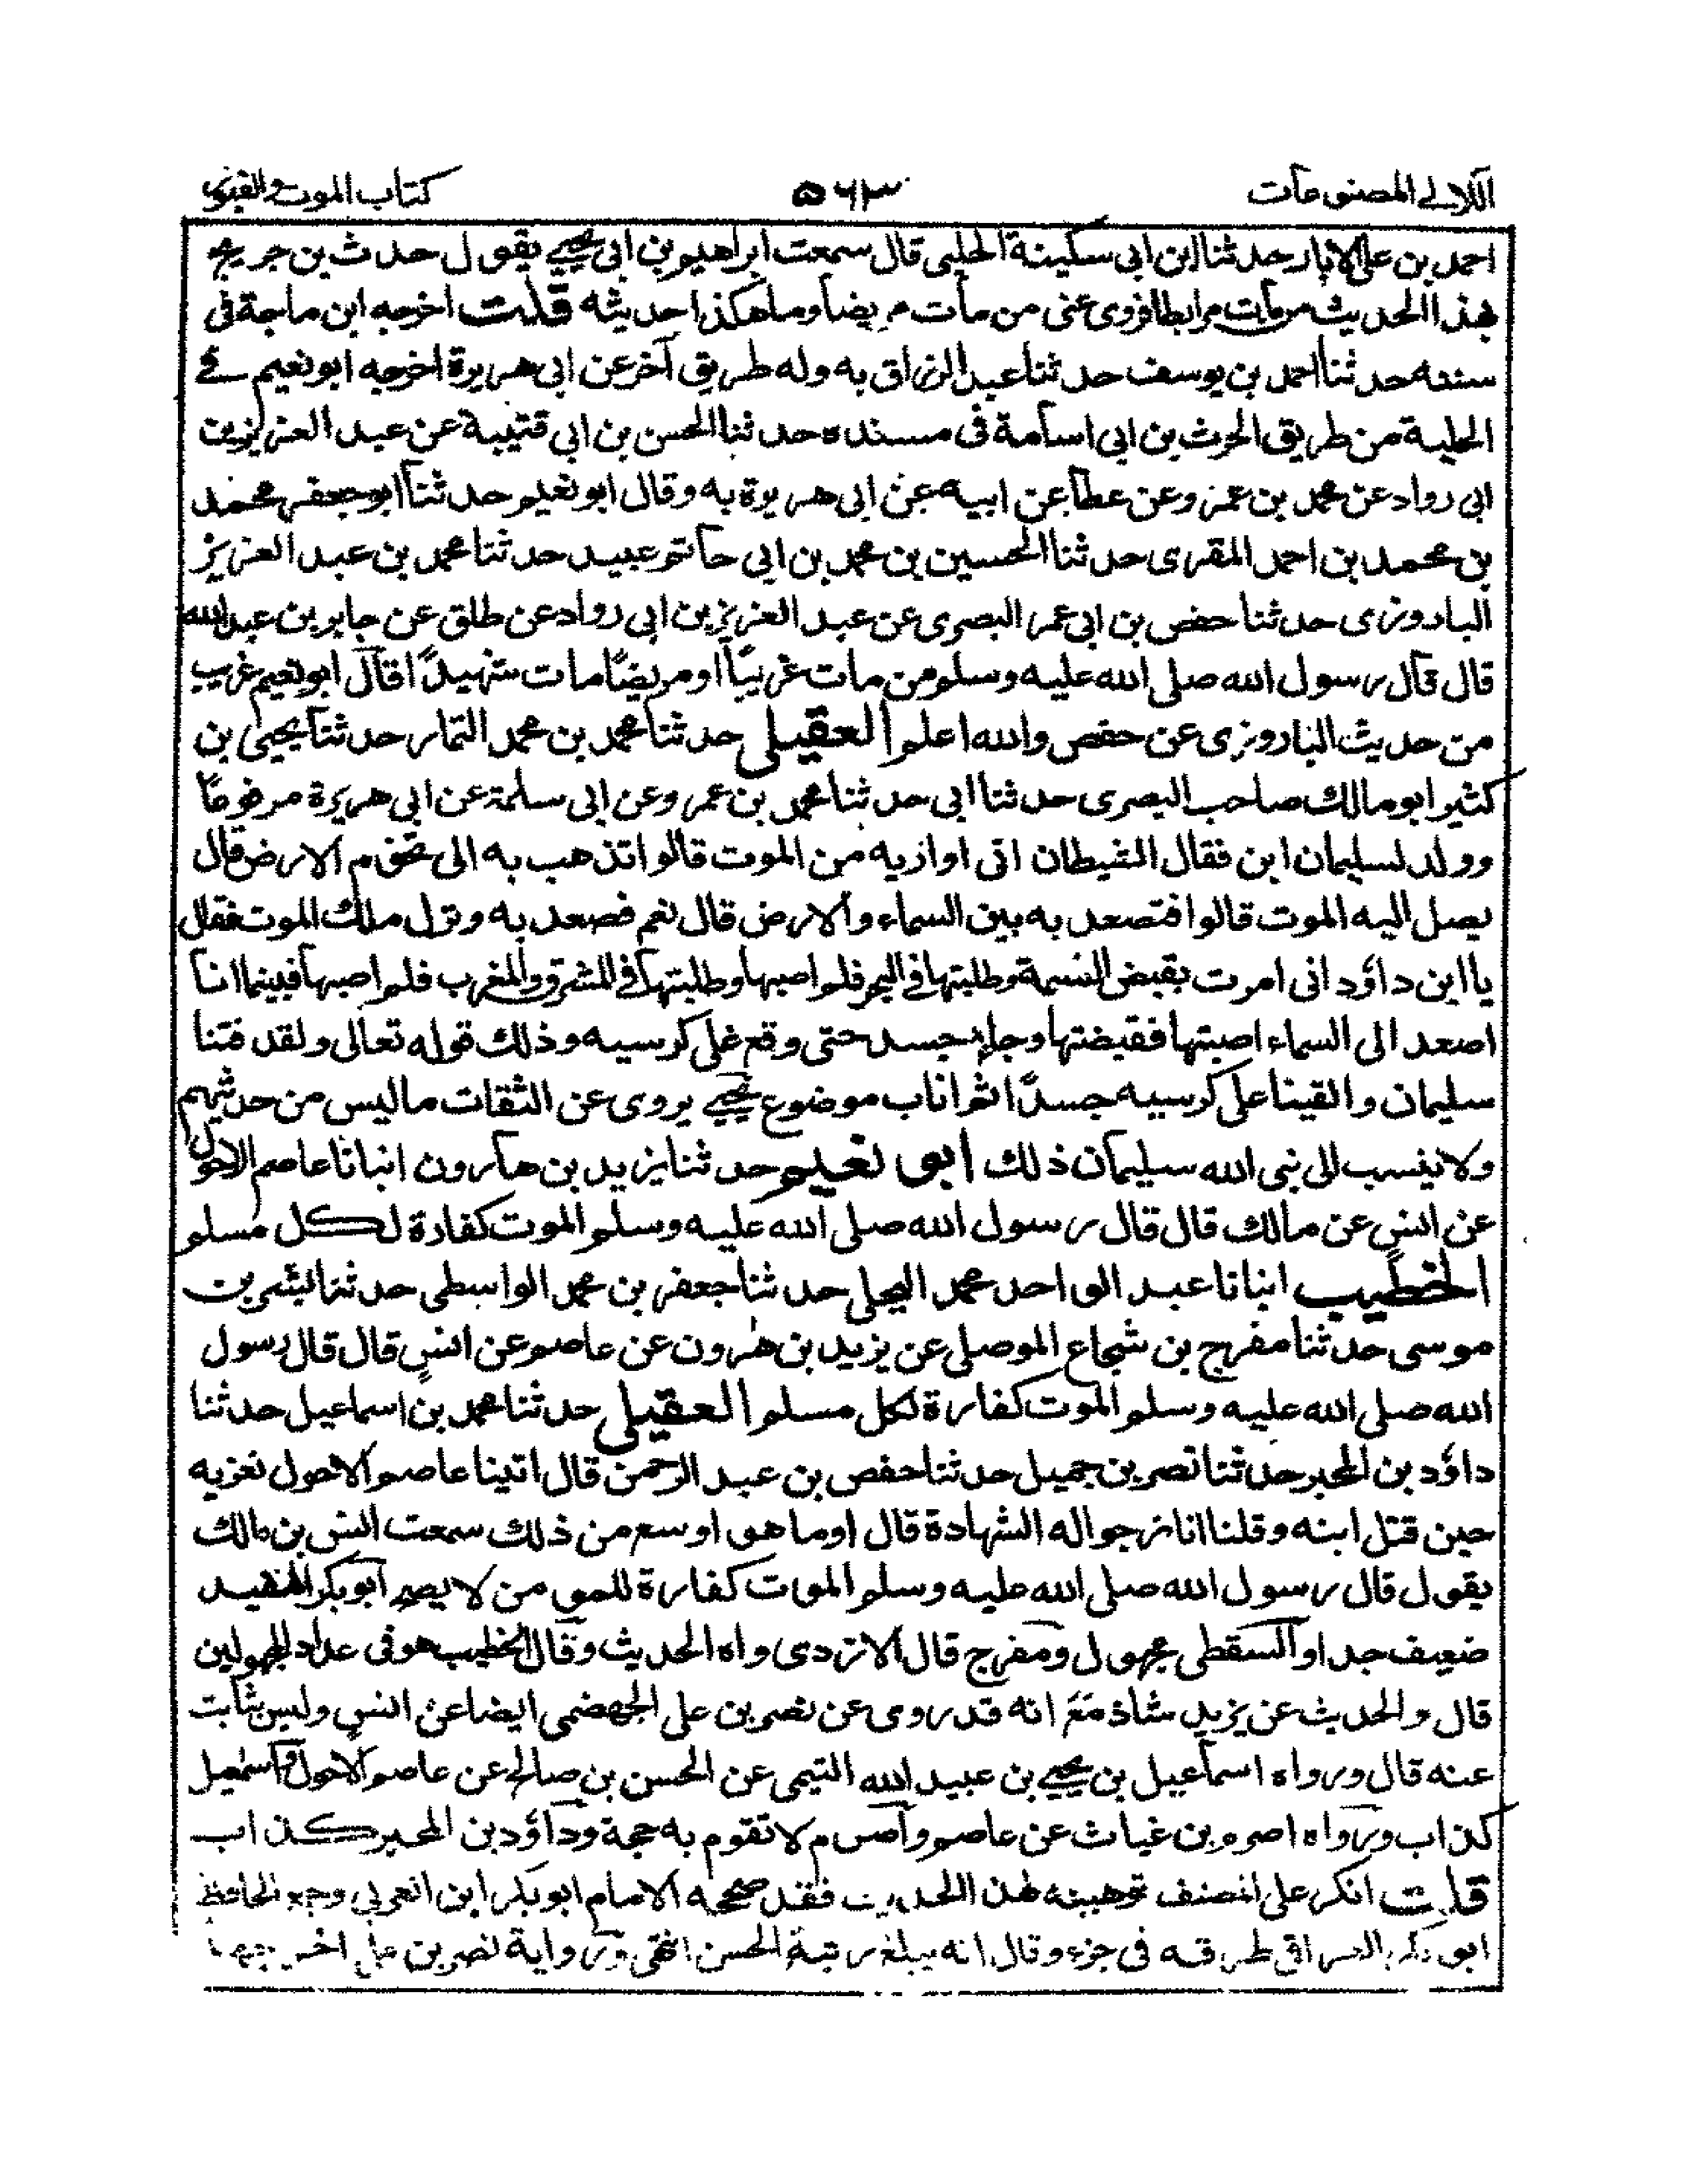 اللالي المصنوعات ٥٦٣ كتاب الموت والقبور
احمد بن على الابار حدثنا ابن ابى سكينة الحلبى قال سمعت ابراهيم بن ابى يحيى يقول حدث بن جريج
بهذا الحديث من مات مرابطا فروى عنى من مات مريضا وما هكذا حديثه قلت اخرجه ابن ماجة فى
سننه حدثنا احمد بن يوسف حدثنا عبد الرزاق به وله طريق آخر عن ابى هريرة اخرجه ابو نعيم فى
الحلية من طريق الحرث بن ابى اسامة فى مسنده حدثنا الحسن بن ابى قتيبة عن عبد العزيز بن
ابى رواد عن محمد بن عمرو عن عطا عن ابيه عن ابى هريرة به وقال ابو نعيم حدثنا ابو جعفر محمد
بن محمد بن احمد المقرى حدثنا الحسين بن محمد بن ابى حاتم عبيد حدثنا محمد بن عبد العزيز
الباروزى حدثنا حفص بن ابى عمر البصرى عن عبد العزيز بن ابى رواد عن طلق عن جابر بن عبد الله
قال قال رسول الله صلى الله عليه وسلم من مات غريبًا او مريضًا مات شهيدًا قال ابو نعيم غريب
من حديث الباروزى عن حفص والله اعلم العقيلى حدثنا محمد بن محمد التمار حدثنا يحيى بن
كثير ابو مالك صاحب البصرى حدثنا ابى حدثنا محمد بن عمرو عن ابى سلمة عن ابى هريرة مرفوعًا
وولد لسليمان ابن فقال الشيطان اتى اوازيه من الموت قالوا تذهب به الى تخوم الارض قال
يصل اليه الموت قالوا فتصعد به بين السماء والارض قال نعم فصعد به ونزل ملك الموت فقال
يا ابن داؤد انى امرت بقبض النسمة وطلبتها فى البحر فلم اصبها وطلبتها فى المشرق والمغرب فلم اصبها فبينما انا
اصعد الى السماء اصبتها فقبضتها وجاء جسد حتى وقع على كرسيه وذلك قوله تعالى ولقد فتنا
سليمان والقينا على كرسيه جسدًا ثم اناب موضوع يحيى يروى عن الثقات ما ليس من حديثهم
ولا ينسب الى نبى الله سليمان ذلك ابو نعيم حدثنا يزيد بن هارون انبانا عاصم الاحول
عن انس عن مالك قال قال رسول الله صلى الله عليه وسلم الموت كفارة لكل مسلم
الخطيب انبانا عبد الواحد محمد البجلى حدثنا جعفر بن محمد الواسطى حدثنا بشر بن
موسى حدثنا مفرج بن شجاع الموصلى عن يزيد بن هرون عن عاصم عن انس قال قال رسول
الله صلى الله عليه وسلم الموت كفارة لكل مسلم العقيلى حدثنا محمد بن اسماعيل حدثنا
داؤد بن المحبر حدثنا نصر بن جميل حدثنا حفص بن عبد الرحمن قال اتينا عاصم الاحول نعزيه
حين قتل ابنه وقلنا انا نرجو اله الشهادة قال او ما هو اوسع من ذلك سمعت انس بن مالك
يقول قال رسول الله صلى الله عليه وسلم الموت كفارة للمو من لا يصح ابو بكر المفيد
ضعيف جدا و السقطى مجهول ومفرج قال الازدى واه الحديث وقال الخطيب هو فى عداد المجهولين
قال والحديث عن يزيد شاذ مع انه قد روى عن نصر بن على الجهضمى ايضا عن انس وليس بثابت
عنه قال ورواه اسماعيل بن يحيى بن عبيد الله التيمى عن الحسن بن صالح عن عاصم الاحول واسمعيل
كذاب ورواه اصرم بن غياث عن عاصم واصرم لا تقوم به حجة وداؤد بن المحبر كذاب
قلت انكر على المصنف توهينه لهذا الحديث فقد صححه الامام ابو بكر ابن العربى وجمع الحافظ
ابو العراقى طرقه فى جزء وقال انه يبلغ رتبة الحسن انتهى ورواية نصر بن على اخرجها